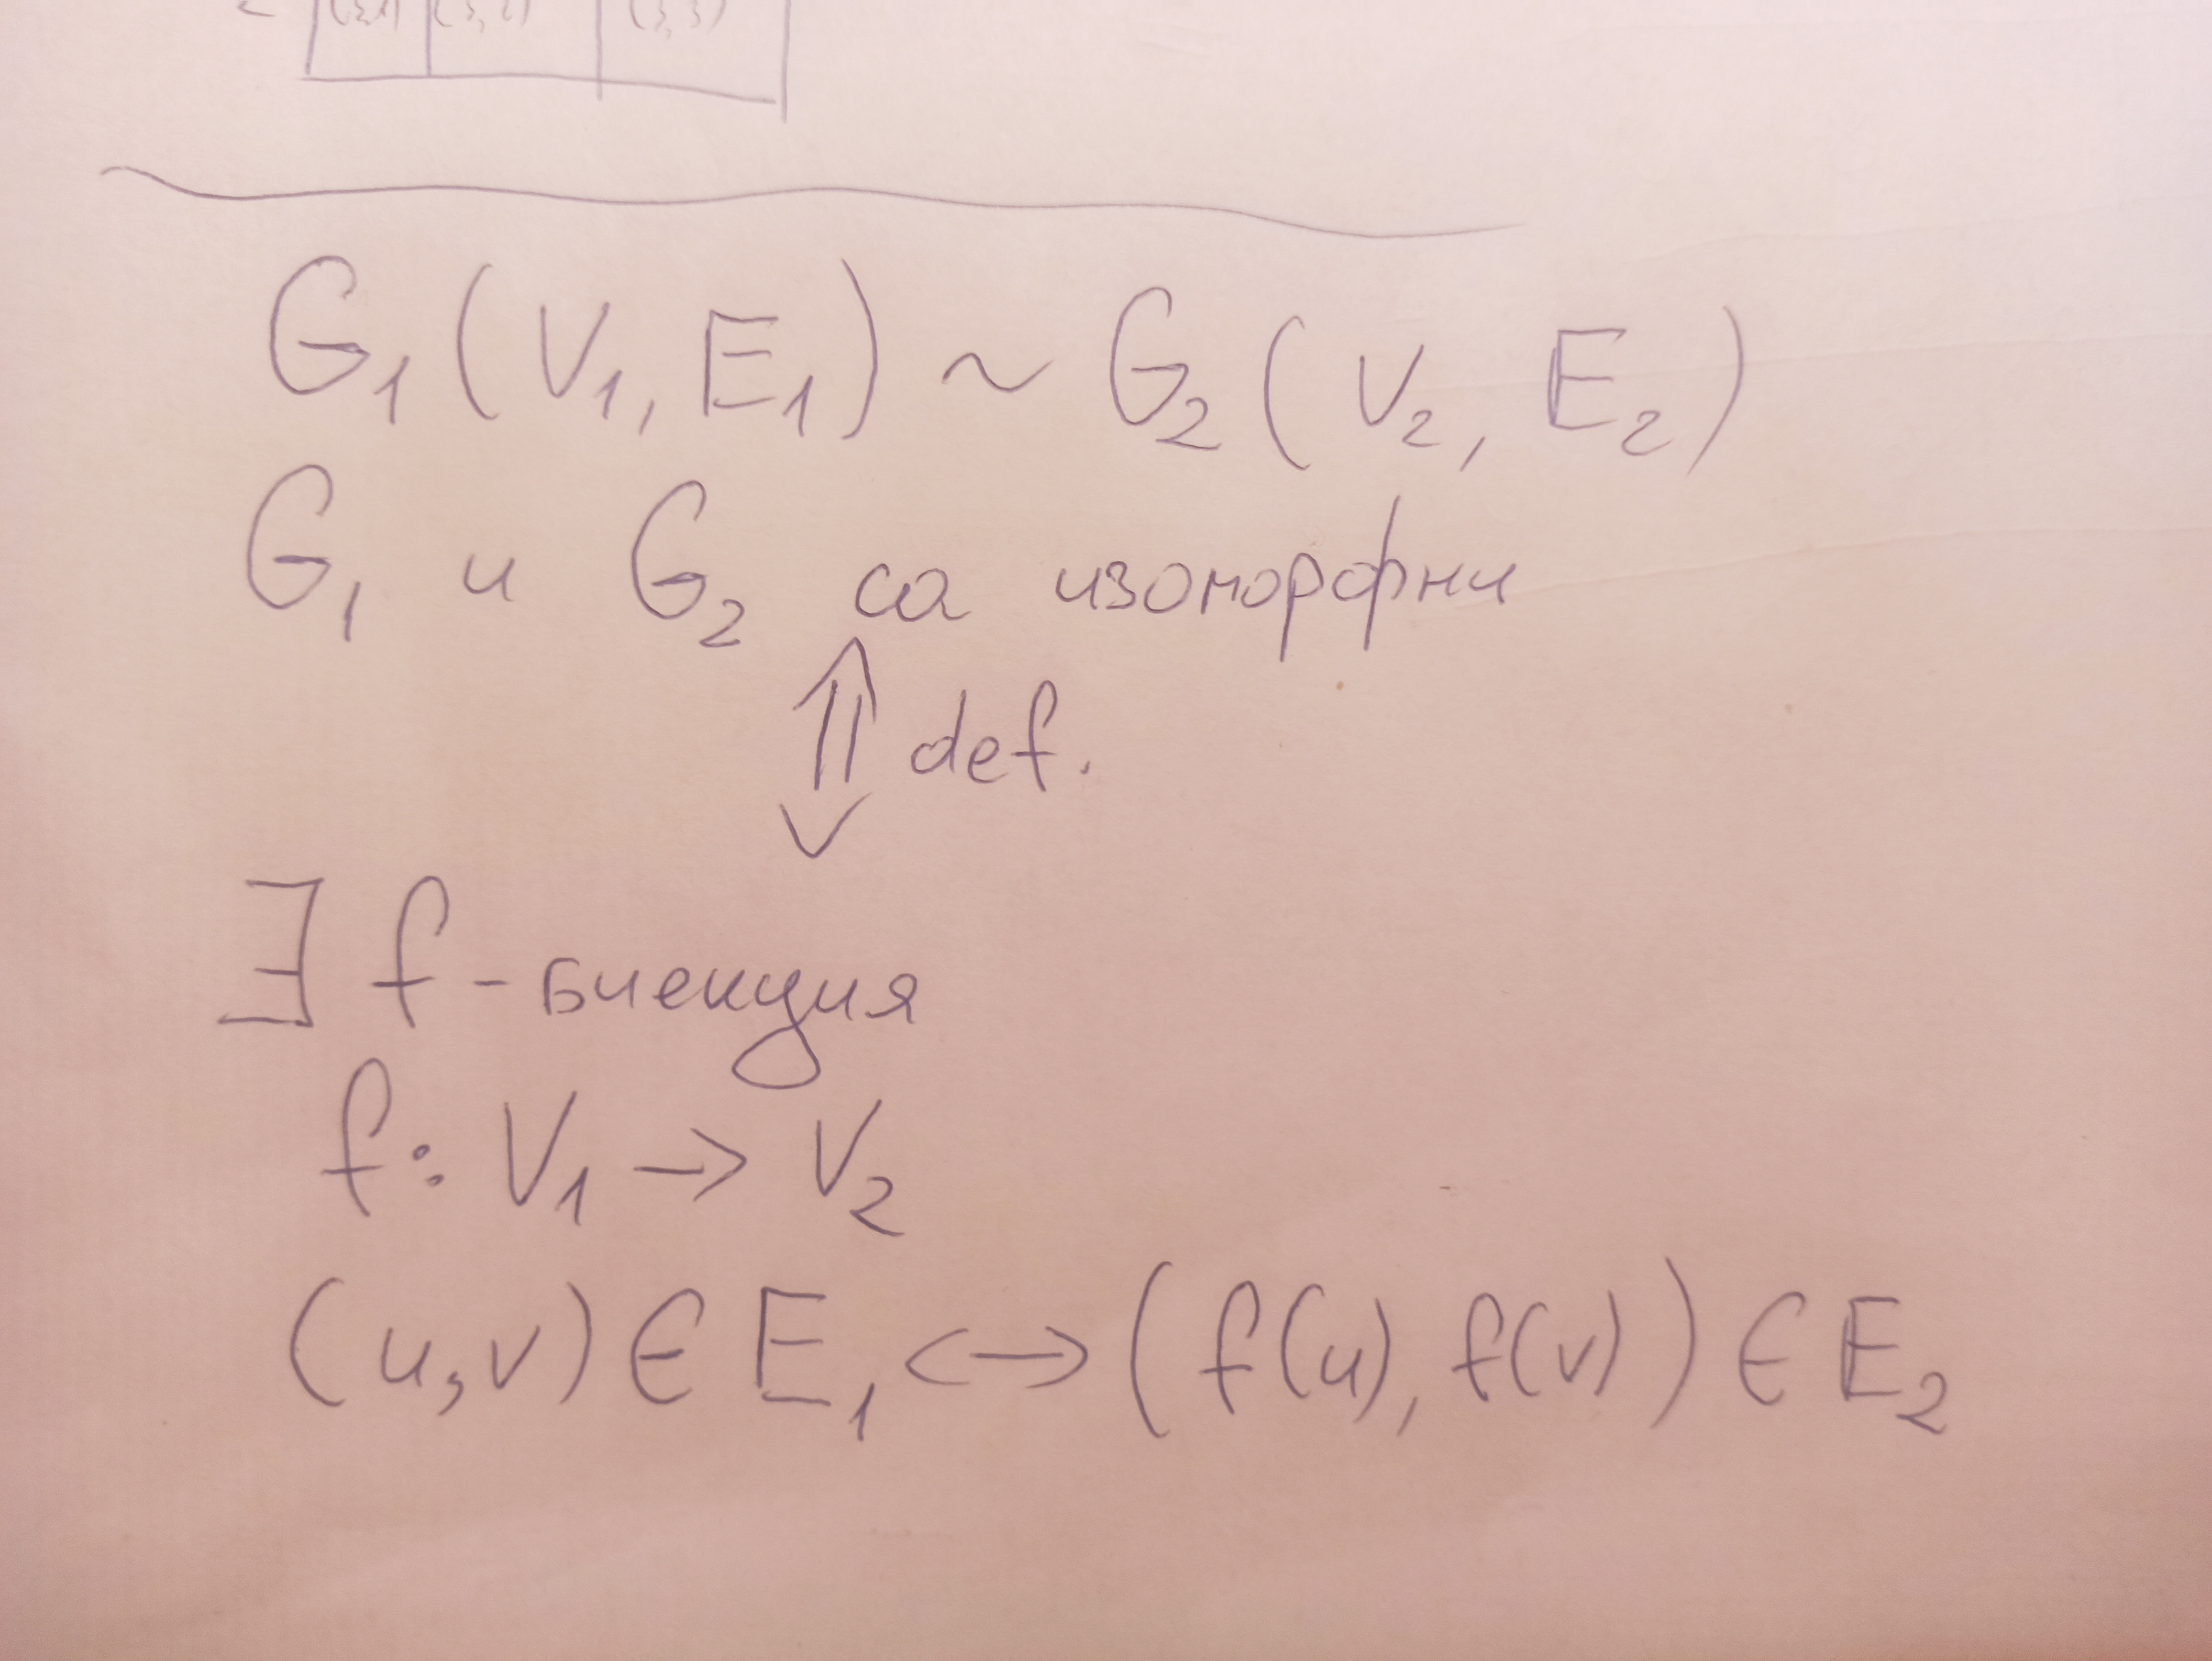 (3,3)
G₁(V₁, E₁) ~ G₂(V₂, E₂)
G₁ и G₂ са изоморфни
⇕ def.
∃ f - биекция
f: V₁ → V₂
(u,v) ∈ E₁ ↔ (f(u), f(v)) ∈ E₂